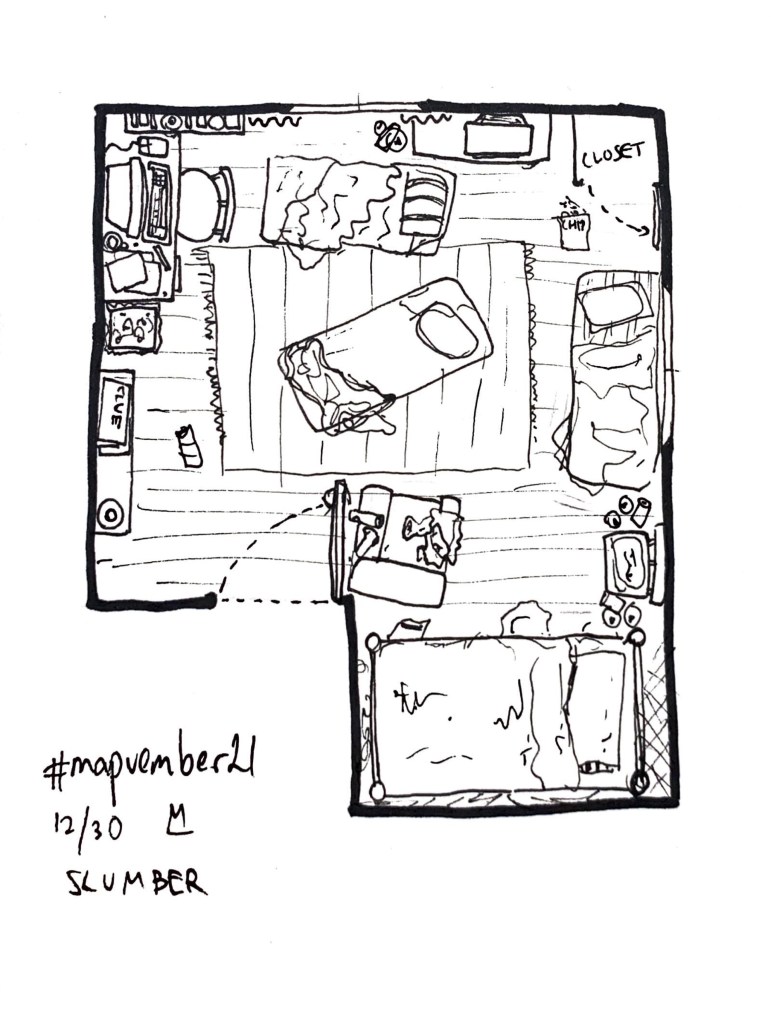 CLOSET
CLUE
#mapvember21
12/30 M
SLUMBER